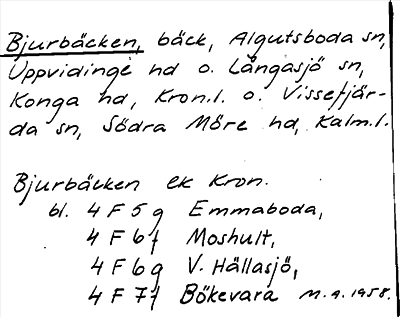 Bjurbäcken, bäck, Algutsboda sn,
Uppvidinge hd o. Långasjö sn,
Konga hd, Kron.l. o. Vissefjär-
da sn, Södra Möre hd, Kalm.l.
Bjurbäcken ek Kron.
bl. 4 F 5 g Emmaboda,
4 F 6 f Moshult,
4 F 6 g V. Hällasjö,
4 F 7 f Bökevara M.A. 1958.